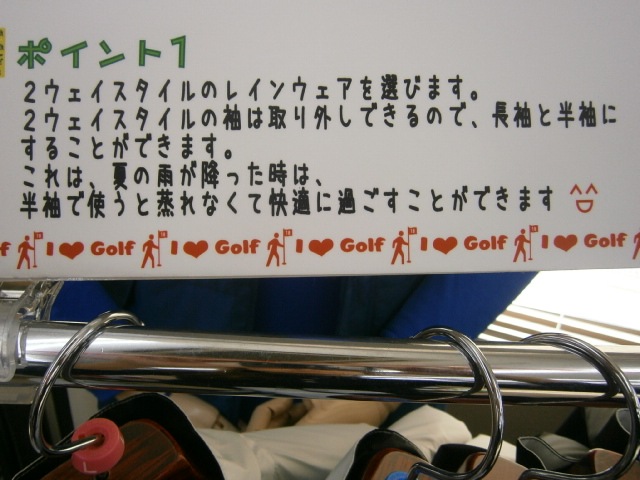 ポイント1
2ウェイスタイルのレインウェアを選びます。
2ウェイスタイルの袖は取り外しできるので、長袖と半袖に
することができます。
これは、夏の雨が降った時は、
半袖で使うと蒸れなくて快適に過ごすことができます
f I ❤ Golf I ❤ Golf I ❤ Golf I ❤ Golf I ❤ Golf
L